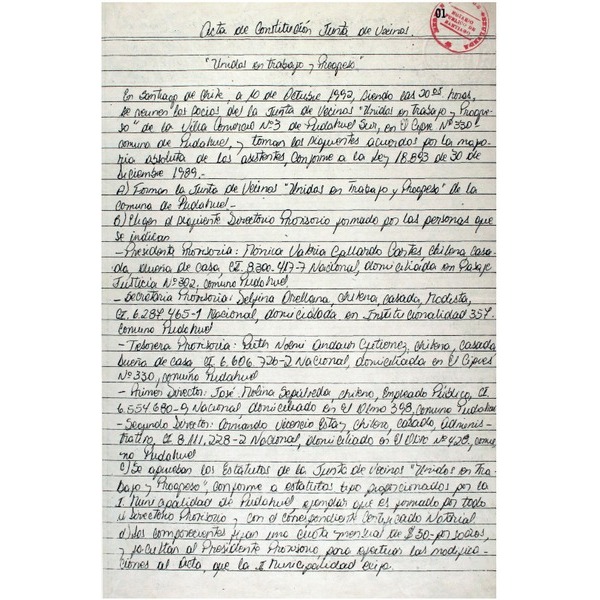 01
NOTARIO
PUBLICO
SANTIAGO
Acta de Constitución Junta de Vecinos.
"Unidos en trabajo y Progreso."
En Santiago de Chile, a 10 de Octubre 1992, siendo las 20 os horas,
se reunen los socios de la Junta de Vecinos "Unidos en trabajo y Progre-
so" de la Villa Comercio Nº3 de Pudahuel Sur, en El Cipre Nº 330
comuna de Pudahuel, y toman los siguientes acuerdos por la mayo-
ria absoluta de los asistentes, conforme a la Ley 18.893 de 30 de
diciembre 1989.-
A) Forman la Junta de Vecinos "Unidos en Trabajo y Progreso" de la
comuna de Pudahuel.-
B) Eligen el siguiente Directorio Provisorio formado por las personas que
se indican
- Presidenta Provisoria: Mónica Valeria Gallardo Cortes, chilena casa-
da dueña de casa, CI. 8.300.417-7 Nacional, domiciliada en Pasaje
Justicia Nº 302, comuna Pudahuel.
- Secretaria Provisoria: Orellana, chilena, casada, Modista,
CI. 6.287.465-1 Nacional, domiciliada en Institucionalidad 357.
comuna Pudahuel
- Tesorera Provisoria: Ruth Noemi Andaur Gutierrez, chilena, casada
dueña de casa CI 6.606.726-2 Nacional, domiciliada en El Cipres
Nº 330, comuna Pudahuel
- Primer Director: José Molina Sepulveda, chileno, Empleado Público, CI
6.554.680-9 Nacional, domiciliado en El Olmo 398, comuna Pudahuel
- Segundo Director: Armando Vicencio chileno, casado, Adminis-
trativo, CI 8.111.228-2 Nacional, domiciliado en El Olivo Nº 428, comu-
na Pudahuel
c) Se aprueban los Estatutos de la Junta de Vecinos "Unidos en Tra-
bajo y "Progreso", conforme a estatutos tipo proporcionados por la
I. Municipalidad de Pudahuel, ejemplar que es firmado por todo
el Directorio Provisorio y con el correspondiente Certificado Notarial.
d) Los comparecientes fijan una cuota mensual de $ 30- por socios,
y facultan al Presidente Provisorio, para efectuar las modifica-
ciones al Acta, que la I Municipalidad exija.